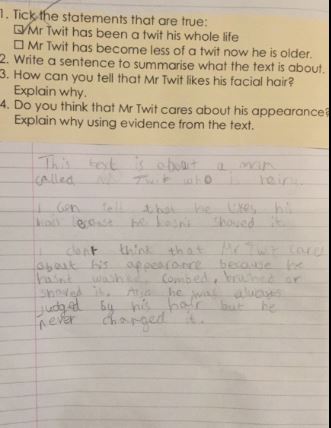 1. Tick the statements that are true:
☑ Mr Twit has been a twit his whole life
☐ Mr Twit has become less of a twit now he is older.
2. Write a sentence to summarise what the text is about.
3. How can you tell that Mr Twit likes his facial hair?
Explain why.
4. Do you think that Mr Twit cares about his appearance?
Explain why using evidence from the text.
This text is about a man
called Mr Twit who is hairy.
I can tell that he likes his
hair because he hasnt shaved it.
I dont think that Mr Twit cares
about his appearance because he
hasnt washed, combed, brushed or
shaved it. he was always
judged by his hair but he
never changed it.